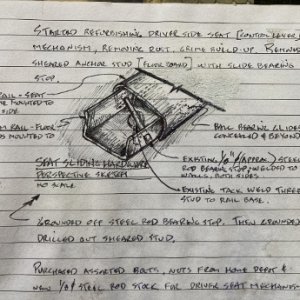 STARTED REFURBISHING DRIVER SIDE SEAT [CONTROL LEVER]
MECHANISM, REMOVING RUST, GRIME BUILD-UP. REMOVED
SHEARED ANCHOR STUD [FLOOR BOARD] WITH SLIDE BEARING
STOP.
RAIL - SEAT
MOUNTED TO
SIDE
RAIL - FLOOR
MOUNTED TO
BALL BEARING SLIDES
CONCEALED & BEYOND
EXISTING 1/8" (APPROX.) STEEL
ROD BEARING STOP, WELDED TO
BOTH SIDES
SEAT SLIDING HARDWARE
PERSPECTIVE SKETCH
NO SCALE
EXISTING TACK WELD THREADED
STUD TO RAIL BASE.
GROUNDED OFF STEEL ROD BEARING STOP. THEN GROUNDED
DRILLED OUT SHEARED STUD.
PURCHASED ASSORTED BOLTS, NUTS FROM HOME DEPOT &
NEW 1/8" STEEL ROD STOCK FOR DRIVER SEAT MECHANISM